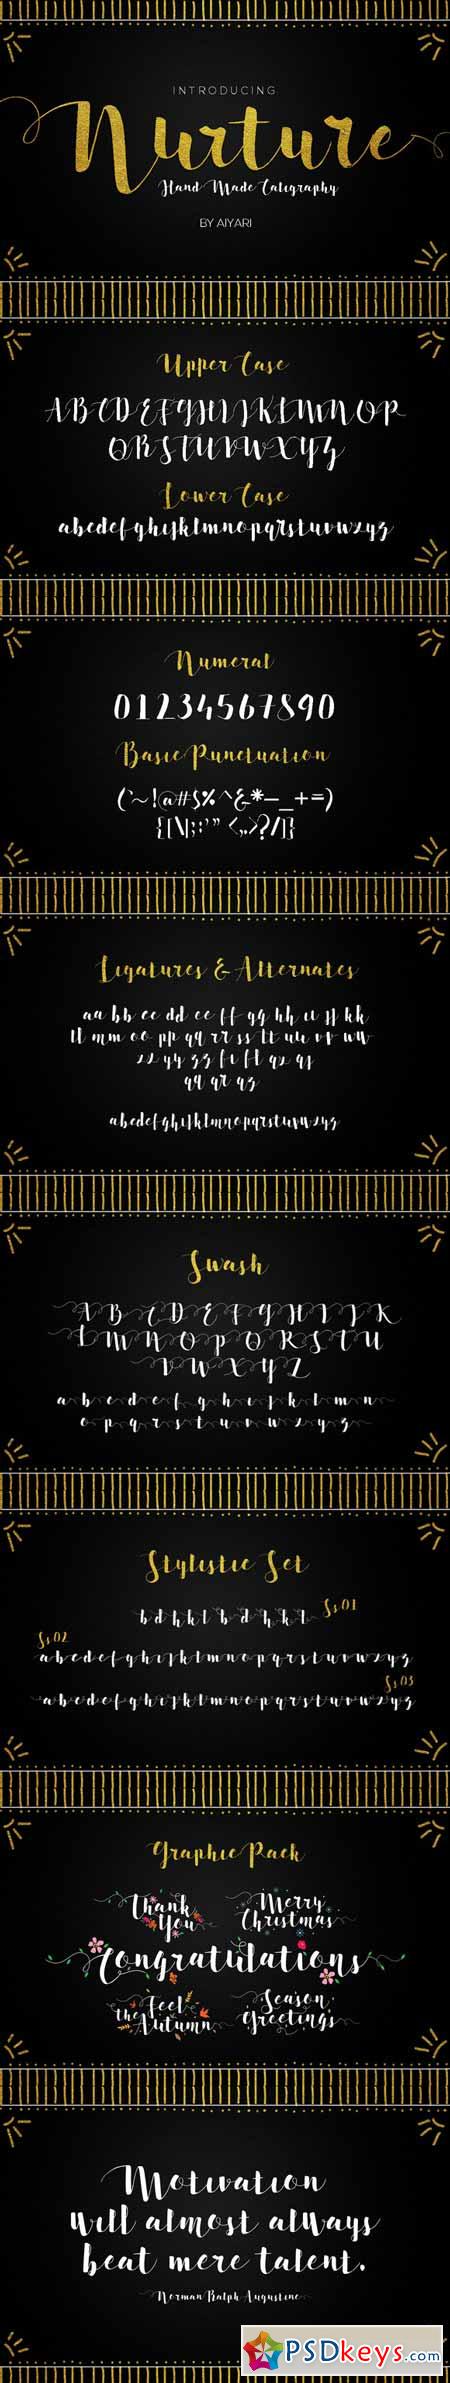 INTRODUCING
Nurture
Hand Made Caligraphy
BY AIYARI
Upper Case
ABCDEFGHIJKLMNOP
QRSTUVWXYZ
Lower Case
abcdefghijklmnopqrstuvwxyz
Numeral
01234567890
Basic Punctuation
Ligatures & Alternates
aa bb cc dd ee ff gg hh ii jj kk
ll mm oo pp qq rr ss tt uu vv ww
abcdefghijklmnopqrstuvwxyz
Swash
A B C D E F G H I J K
L M N O P Q R S T U
V W X Y Z
a b c d e f g h i j k l m n
o p q r s t u v w x y z
Stylistic Set
b d h k l b d h k l Ss 01
Ss 02
a b c d e f g h i j k l m n o p q r s t u v w x y z
Ss 03
a b c d e f g h i j k l m n o p q r s t u v w x y z
Graphic Pack
Thank
You
Merry
Christmas
Congratulations
Feel
the Autumn
Season
Greetings
Motivation
will almost always
beat mere talent.
Norman Ralph Augustine
PSDkeys.com